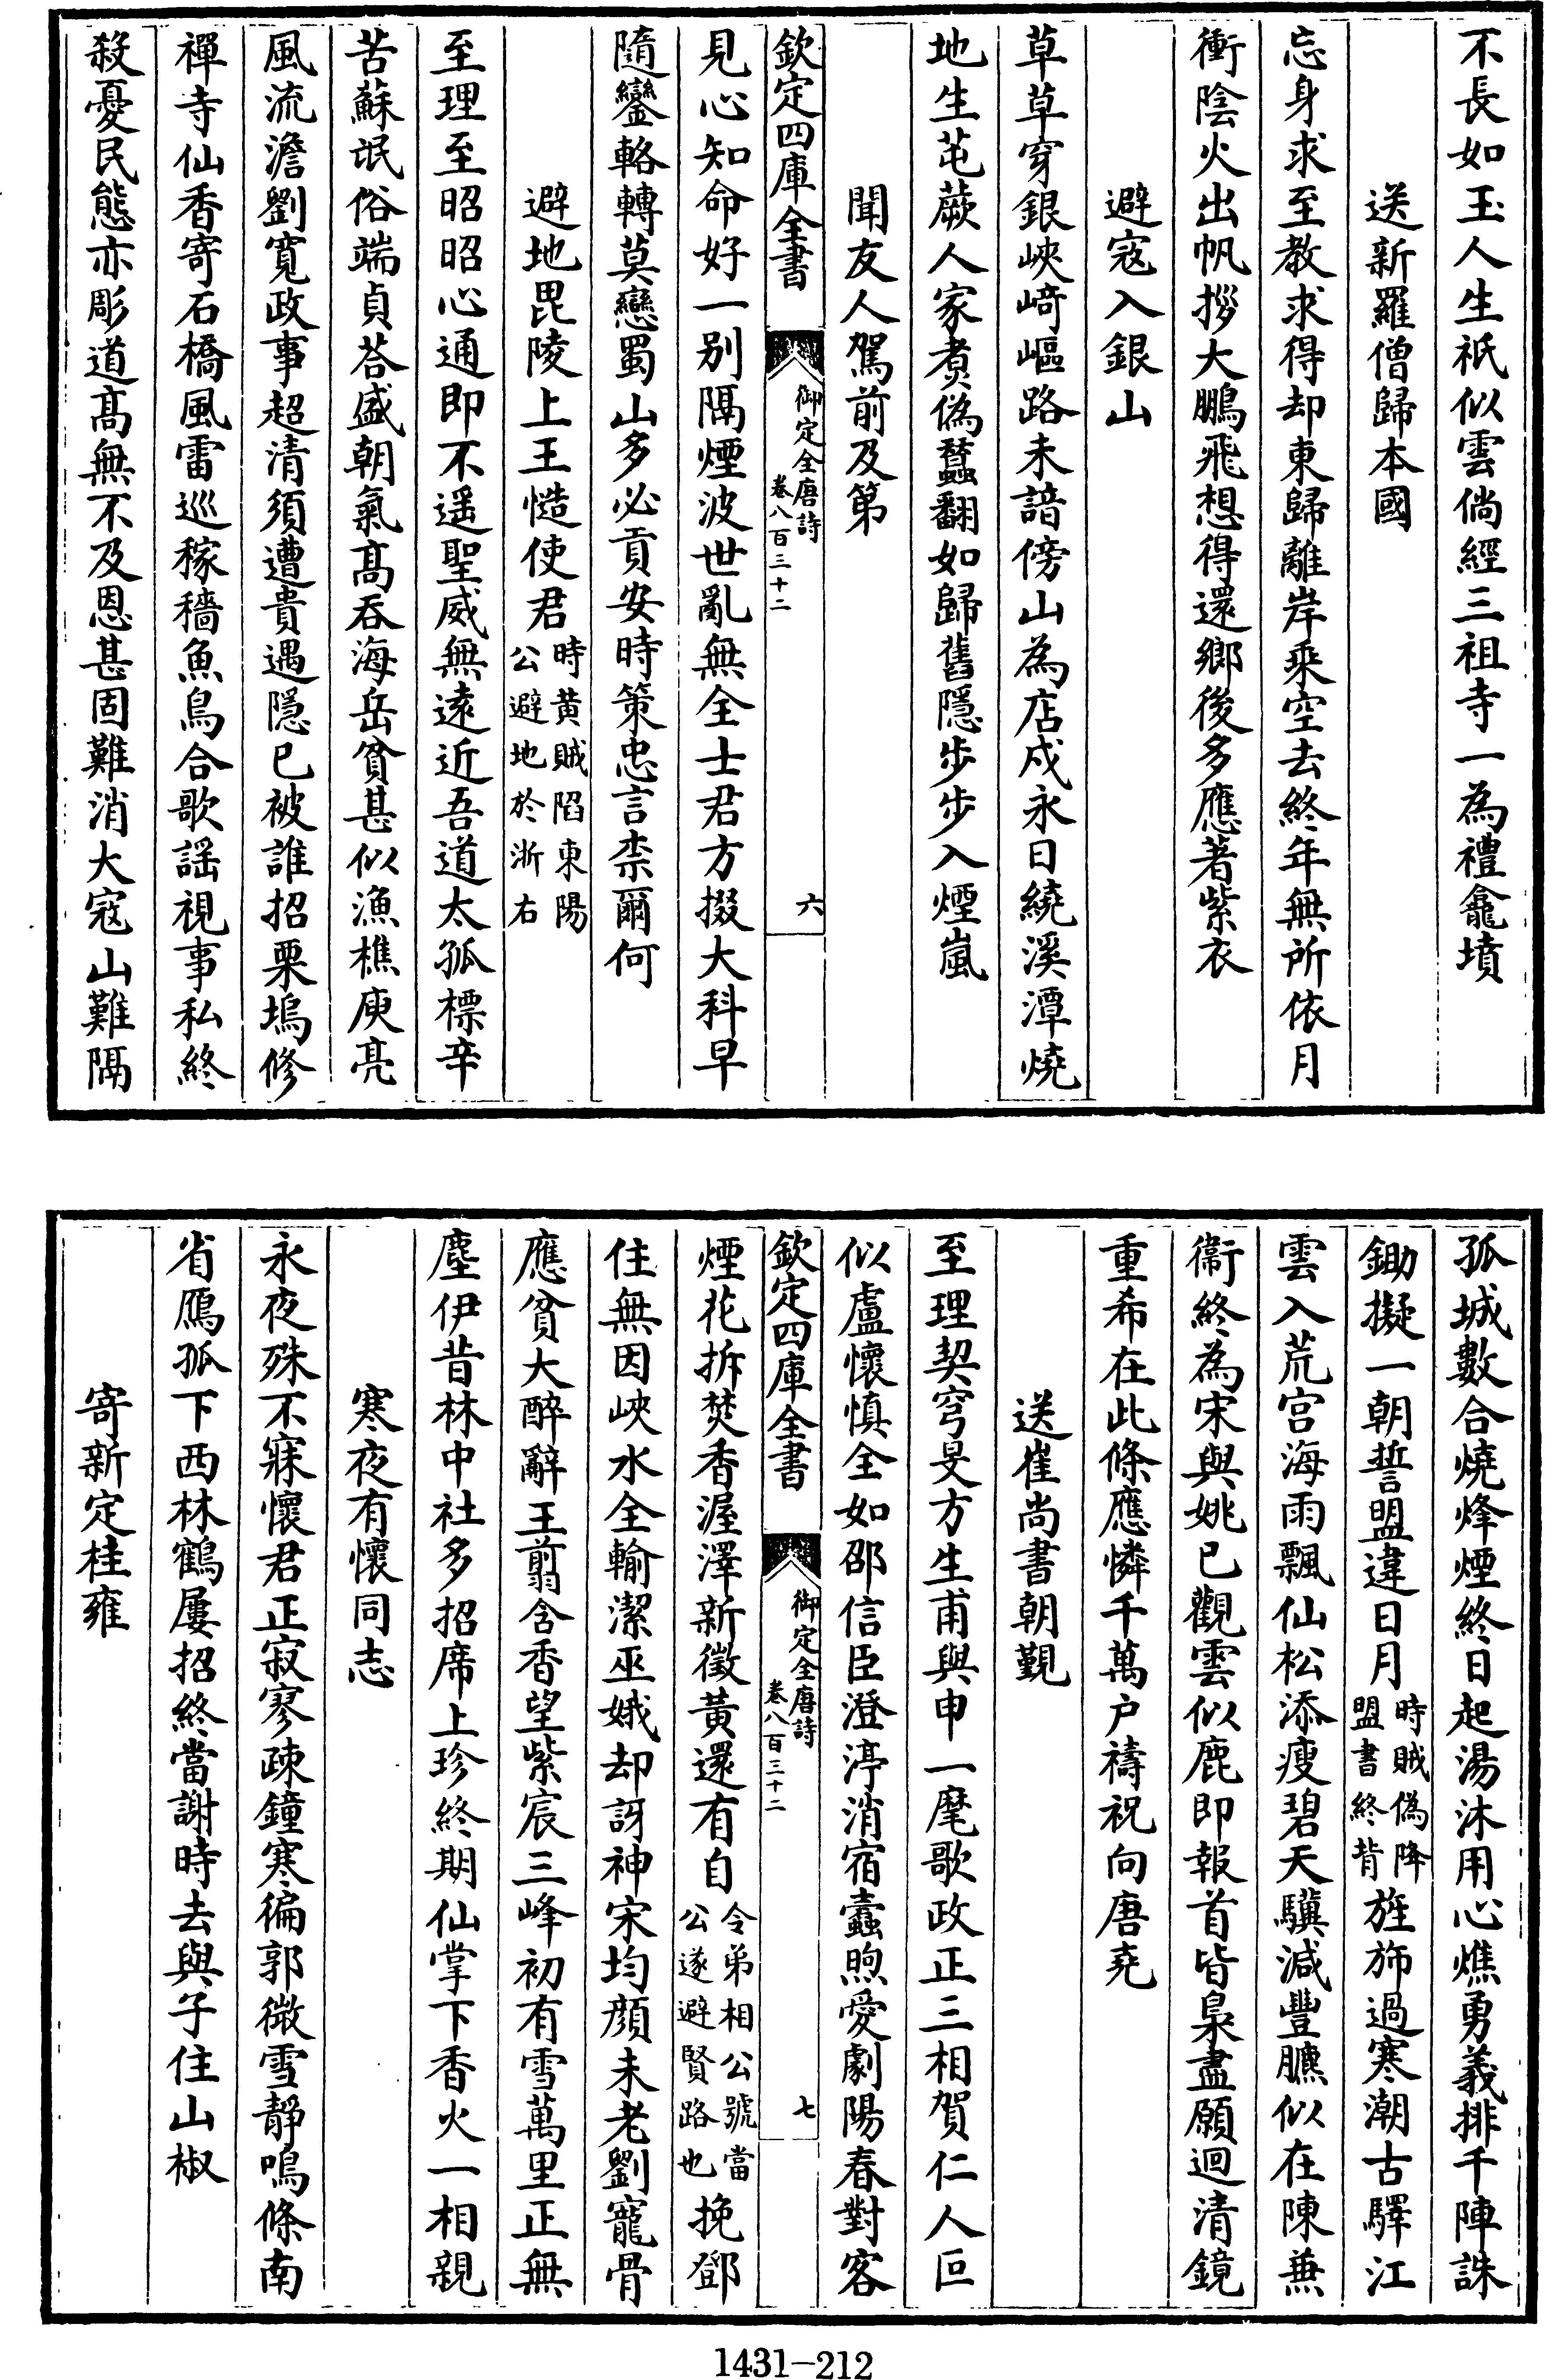 不長如玉人生祇似雲倘經三祖寺一為禮龕墳
送新羅僧歸本國
忘身求至教求得却東歸離岸乘空去終年無所依月
衝陰火出帆拶大鵬飛想得還鄉後多應著紫衣
避寇入銀山
草草穿銀峽崎嶇路未諳傍山為店戍永日繞溪潭燒
地生芚蕨人家煑偽蠶翻如歸舊隱步步入煙嵐
聞友人駕前及第
欽定四庫全書
御定全唐詩
卷八百三十二
六
見心知命好一别隔煙波世亂無全士君方掇大科早
隨鑾輅轉莫戀蜀山多必貢安時策忠言柰爾何
避地毘陵上王慥使君
時黄賊陷東陽
公避地於浙右
至理至昭昭心通即不遥聖威無遠近吾道太孤標辛
苦蘇氓俗端貞荅盛朝氣髙吞海岳貧甚似漁樵庾亮
風流澹劉寬政事超清須遭貴遇隱已被誰招栗塢修
禪寺仙香寄石橋風雷巡稼穡魚鳥合歌謡視事私終
殺憂民態亦彫道髙無不及恩甚固難消大寇山難隔
孤城數合燒烽煙終日起湯沐用心燋勇義排千陣誅
鋤擬一朝誓盟違日月
時賊偽降
盟書終背
旌斾過寒潮古驛江
雲入荒宫海雨飄仙松添瘦碧天驥減豐臕似在陳兼
衞終為宋與姚已觀雲似鹿即報首皆梟盡願迴清鏡
重希在此條應憐千萬户禱祝向唐堯
送崔尚書朝覲
至理契穹旻方生甫與申一麾歌政正三相賀仁人叵
似盧懷慎全如邵信臣澄渟消宿蠹煦愛劇陽春對客
欽定四庫全書
御定全唐詩
卷八百三十二
七
煙花拆焚香渥澤新徵黄還有自
令弟相公號當
公遂避賢路也
挽鄧
住無因峽水全輸潔巫娥却訝神宋均顔未老劉寵骨
應貧大醉辭王翦含香望紫宸三峰初有雪萬里正無
塵伊昔林中社多招席上珍終期仙掌下香火一相親
寒夜有懷同志
永夜殊不寐懷君正寂寥疎鐘寒徧郭微雪靜鳴條南
省鴈孤下西林鶴屢招終當謝時去與子住山椒
寄新定桂雍
1431—212